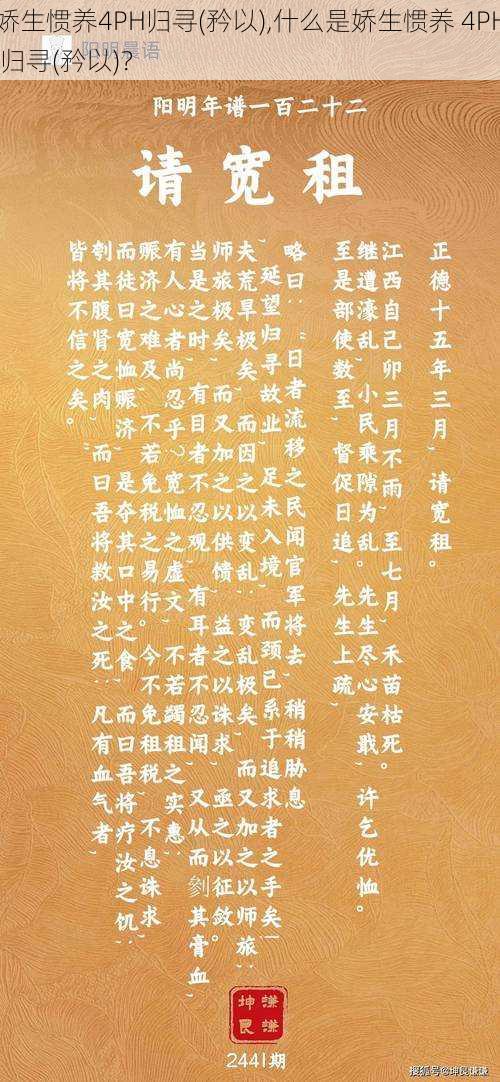 娇生惯养4PH归寻(矜以),什么是娇生惯养 4PH
归寻(矜以)?
阳明晨语
阳明年谱一百二十二
请宽租
正德十五年三月，请宽租。
江西自己卯三月不雨，至七月，禾苗枯死。
继遭濠乱，小民乘隙为乱。先生尽心安戢，许乞优恤。
至是部使数至，督促日追，先生上疏，
略曰：“日者流移之民闻官军将去，稍稍胁息
延望归寻故业，足未入境，而颈已系于追求者之手矣！
夫荒旱极矣，而因之以变乱；变乱极矣，而又加之以师旅；
师旅极矣，而又加之以供馈，益之以诛求，亟之以征敛。
当是之时，有目者不忍观，有耳者不忍闻，又从而剜其膏血，
有人心者尚忍乎？宽恤之虚文，不若蠲租之实惠；
赈济之难及，不若免税之易行。今不免租税，不息诛求，
而徒曰宽恤赈济，是夺其口中之食，而曰吾将疗汝之饥；
刳其腹肾之肉，而曰吾将救汝之死。凡有血气者，
皆将不信之矣。”
坤 谦
良 谦
2441期
搜狐号@坤良谦谦